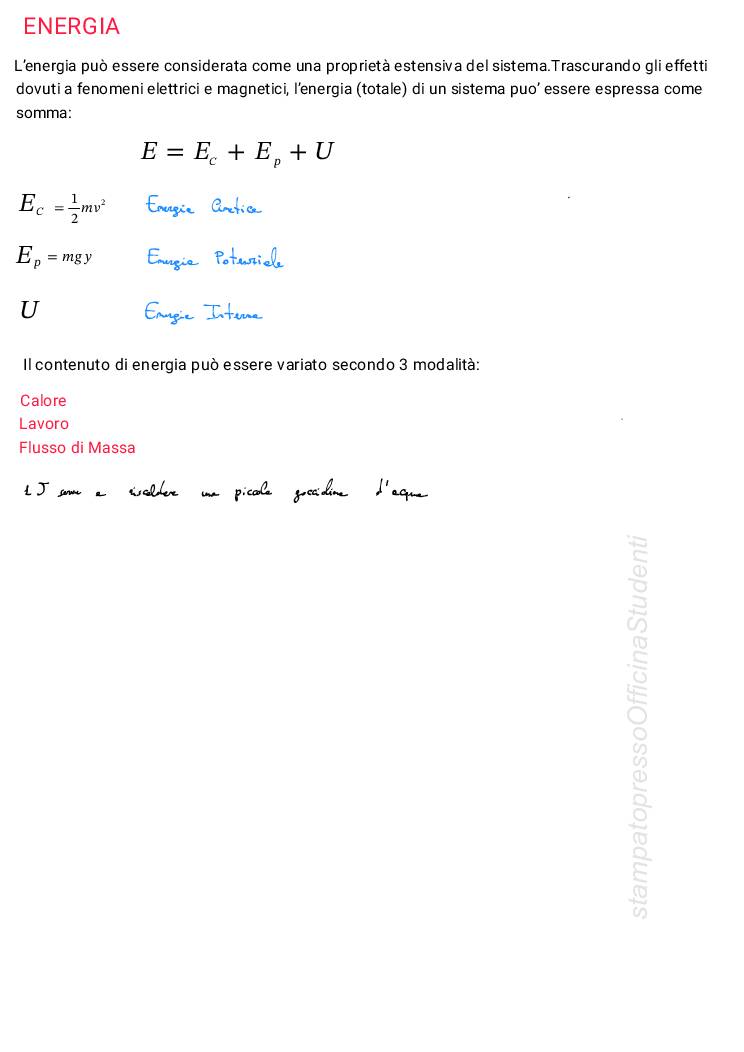 ENERGIA
L'energia può essere considerata come una proprietà estensiva del sistema.Trascurando gli effetti
dovuti a fenomeni elettrici e magnetici, l'energia (totale) di un sistema puo' essere espressa come
somma:
E = E_c + E_p + U
E_c = 1/2 mv² Energia Cinetica
E_p = mgy Energia Potenziale
U Energia Interna
Il contenuto di energia può essere variato secondo 3 modalità:
Calore
Lavoro
Flusso di Massa
1 J serve a riscaldare una piccola gocciolina d'acqua
stampatopressoOfficinaStudenti